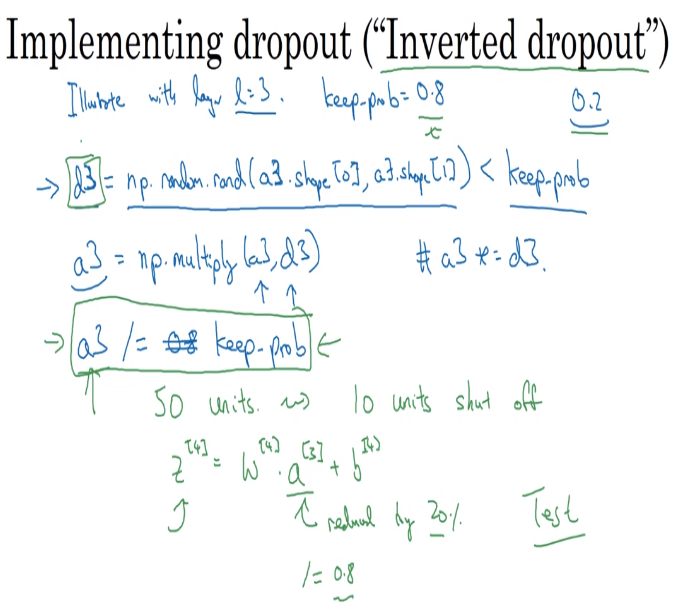 Implementing dropout (“Inverted dropout”)
Illustrate with layer l=3. keep-prob=0.8 0.2
→ d3 = np.random.rand(a3.shape[0], a3.shape[1]) < keep-prob
a3 = np.multiply(a3, d3) # a3 *= d3.
→ a3 /= 0.8 keep-prob ←
50 units. ⇝ 10 units shut off
z^[4] = W^[4] · a^[3] + b^[4]
reduced by 20%. Test
/= 0.8